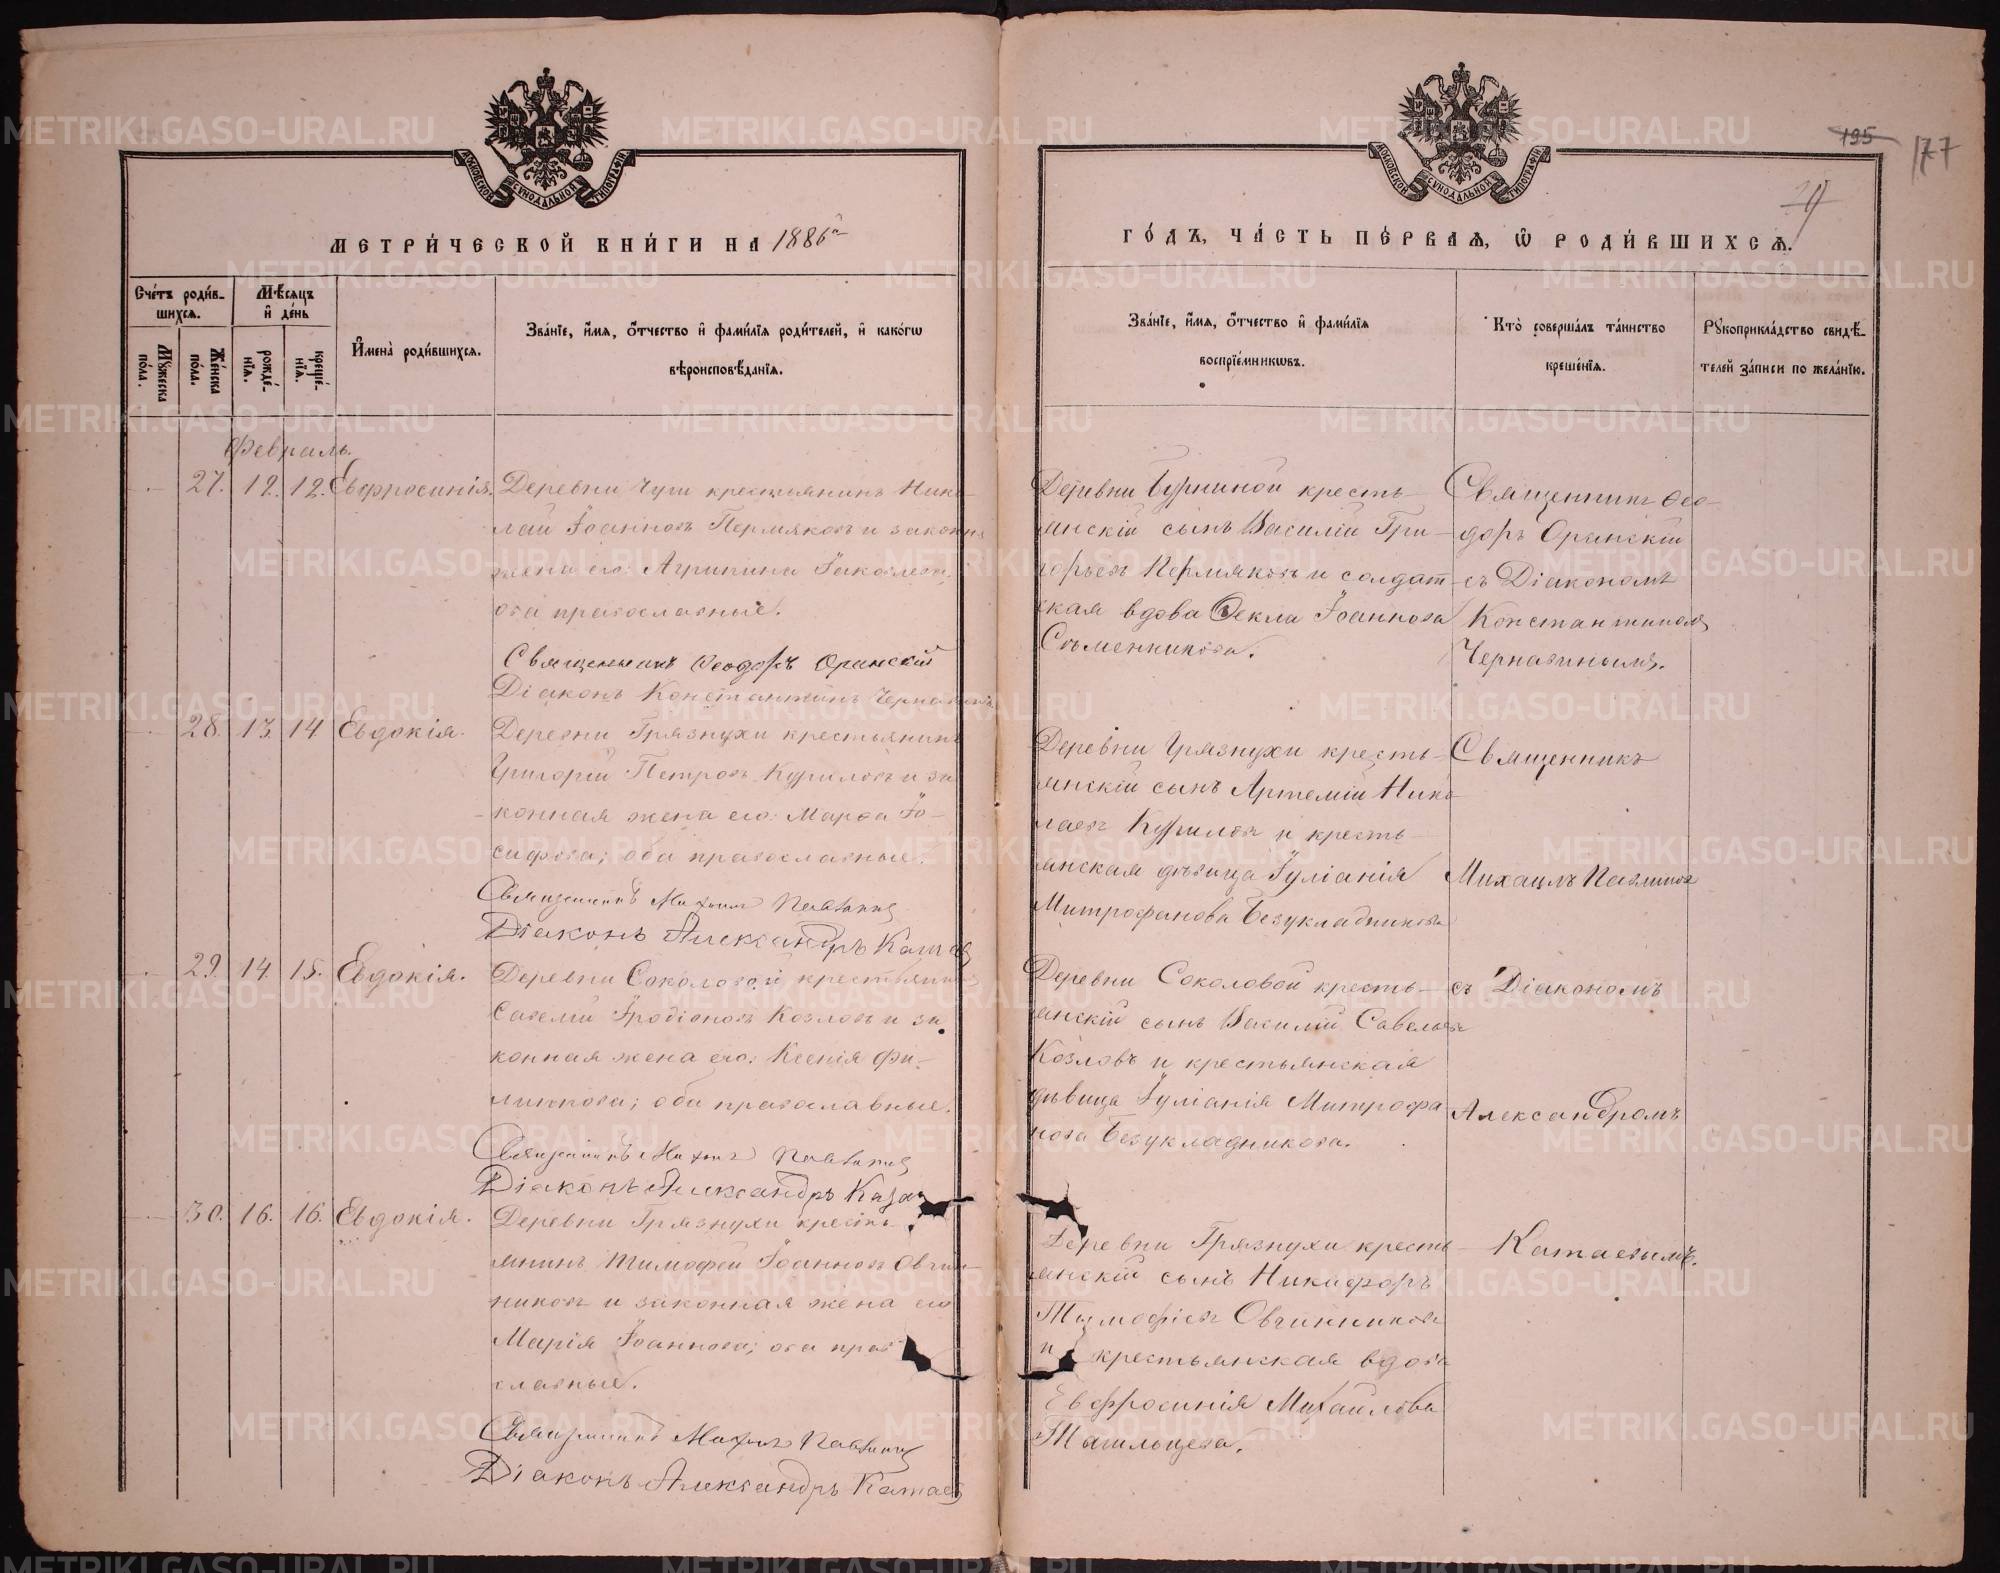 195 177
МОСКОВСКОЙ СѴНОДАЛЬНОЙ ТИПОГРАФІИ
МОСКОВСКОЙ СѴНОДАЛЬНОЙ ТИПОГРАФІИ
МЕТРИ́ЧЕСКОЙ КНИ́ГИ НА 1886й
ГО́ДЪ, ЧА́СТЬ ПЕ́РВАѦ, Ѡ҆ РОДИ́ВШИХСѦ.
Сче́тъ роди́в-
шихсѧ.
Мꙋ́жеска по́ла.
Же́нска по́ла.
Мѣ́сѧцъ и҆ де́нь
рожде́нїѧ.
креще́нїѧ.
И҆мена̀ роди́вшихсѧ.
Зва́нїе, и҆́мѧ, ѻ҆́тчество и҆ фами́лїѧ роди́телей, и҆ како́гѡ
вѣроисповѣ́данїѧ.
Зва́нїе, и҆́мѧ, ѻ҆́тчество и҆ фами́лїѧ
воспрїе́мникѡвъ.
Кто̀ соверша́лъ та́инство
креще́нїѧ.
Рꙋкоприкла́дство свидѣ́-
телей за́писи по жела́нїю.
Февраль.
27. 12. 12. Евфросинія.
Деревни Чуги крестьянинъ Нико-
лай Іоанновъ Пермяковъ и законн
жена его: Агрипина Іаковлева
оба православные.
Священникъ Ѳеодоръ Оранскій
Діаконъ Константинъ Чернавинъ
Деревни Бурниной кресть-
янскій сынъ Василій Гри-
горьевъ Пермяковъ и солдат-
ская вдова Ѳекла Іоаннова
Священникъ Ѳео-
доръ Оранскій
съ Діакономъ
Константиномъ
Чернавинымъ.
28. 13. 14 Евдокія.
Деревни Грязнухи крестьянинъ
Григорій Петровъ Куриловъ и за-
конная жена его: Марѳа Іо-
сифова; оба православные.
Священникъ Михаилъ Павлинов
Діаконъ Александръ Катаев
Деревни Грязнухи кресть-
янскій сынъ Артемій Нико
лаевъ Куриловъ и кресть-
янская дѣвица Іуліанія
Митрофанова Безукладникова
Священникъ
Михаилъ Павлиновъ
29. 14. 15. Евдокія.
Деревни Соколовой крестьянинъ
Савелій Иродіоновъ Козловъ и за
конная жена его: Ксенія Фи-
липпова; оба православные.
Священникъ Михаилъ Павлинов
Діаконъ Александръ Ката
Деревни Соколовой кресть-
янскій сынъ Василій Савельевъ
Козловъ и крестьянская
дѣвица Іуліанія Митрофа
нова Безукладникова.
съ Діакономъ
Александромъ
30. 16. 16. Евдокія.
Деревни Грязнухи кресть
янинъ Тимофей Іоанновъ Овчин-
никовъ и законная жена его
Марія Іоаннова; оба прав
славные.
Священникъ Михаилъ Павлинов
Діаконъ Александръ Катаев
Деревни Грязнухи кресть-
янскій сынъ Никифоръ
Тимофіевъ Овчинниковъ
и крестьянская вдова
Евфросинія Михайлова
Катаевымъ.
METRIKI.GASO-URAL.RU